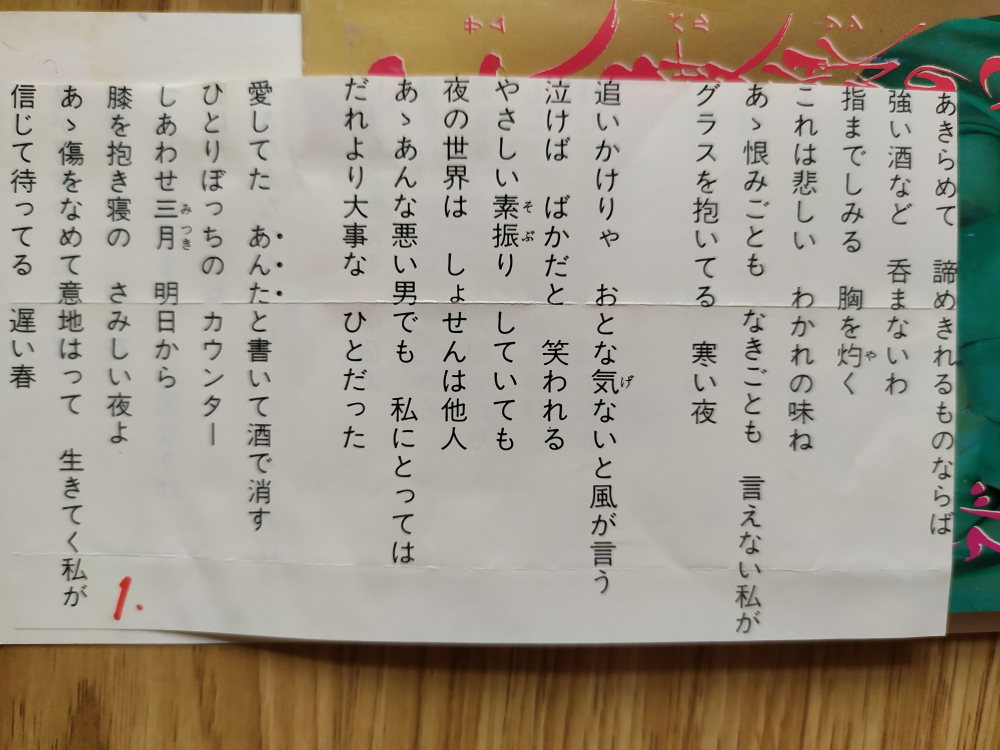 あきらめて　諦めきれるものならば
強い酒など　呑まないわ
指までしみる　胸を灼く
これは悲しい　わかれの味ね
あゝ恨みごとも　なきごとも　言えない私が
グラスを抱いてる　寒い夜
追いかけりゃ　おとな気ないと風が言う
泣けば　ばかだと　笑われる
やさしい素振り　していても
夜の世界は　しょせんは他人
あゝあんな悪い男でも　私にとっては
だれより大事な　ひとだった
愛してた　あんたと書いて酒で消す
ひとりぼっちの　カウンター
しあわせ三月　明日から
膝を抱き寝の　さみしい夜よ
あゝ傷をなめて意地はって　生きてく私が
信じて待ってる　遅い春
1.